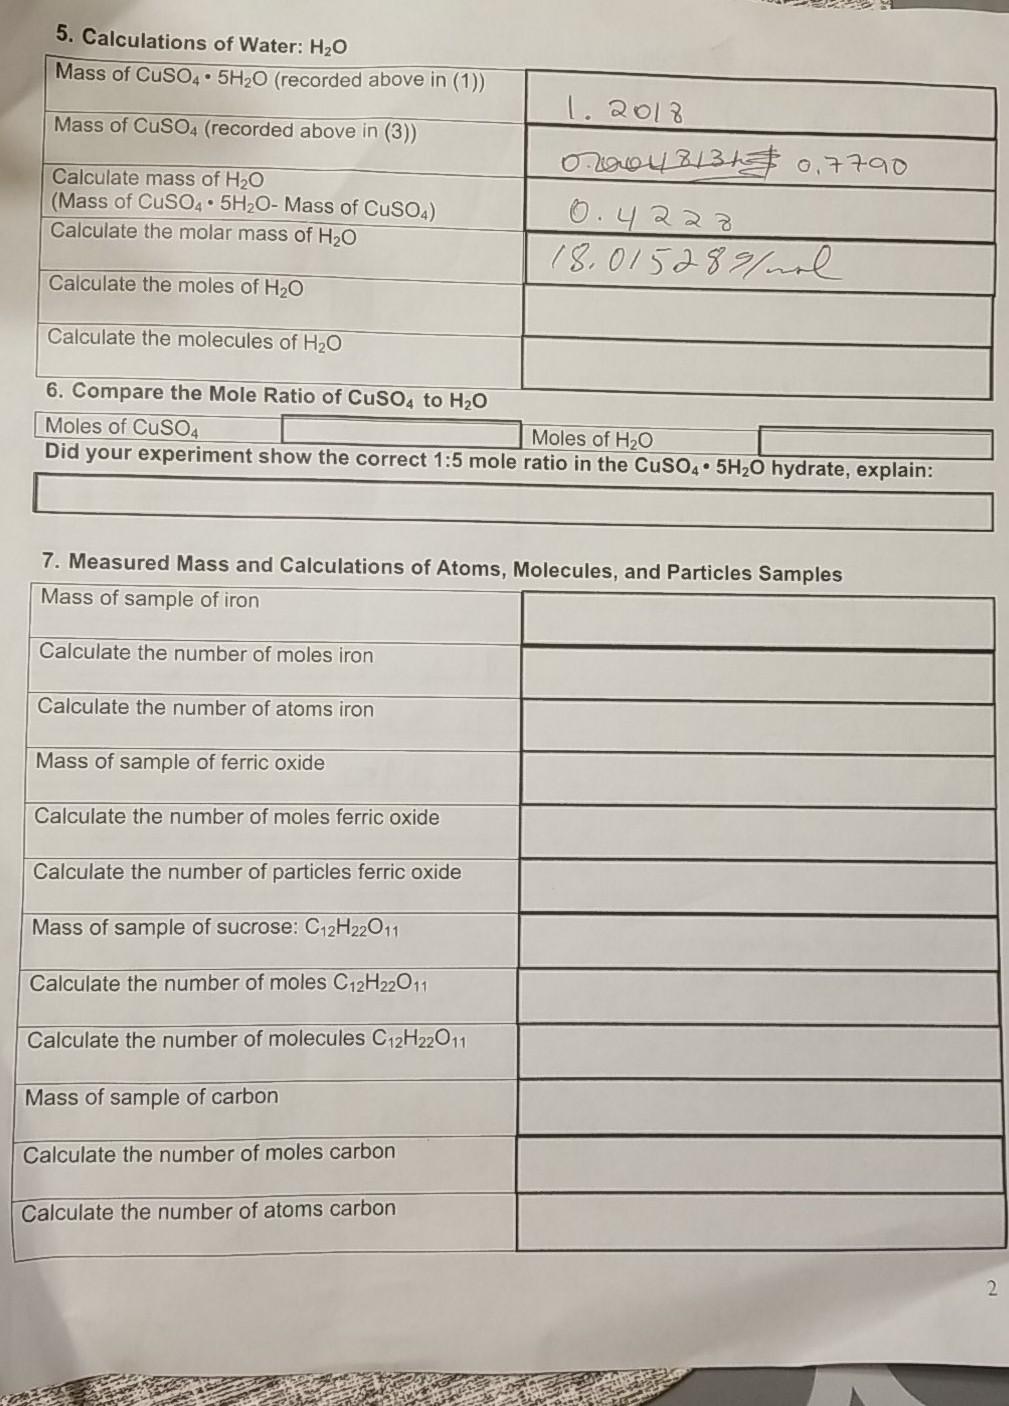 5. Calculations of Water: H₂O
Mass of CuSO₄ • 5H₂O (recorded above in (1))
1.2018
Mass of CuSO₄ (recorded above in (3))
0.7790
Calculate mass of H₂O
(Mass of CuSO₄ • 5H₂O- Mass of CuSO₄)
0.4228
Calculate the molar mass of H₂O
18.01528 g/mol
Calculate the moles of H₂O
Calculate the molecules of H₂O
6. Compare the Mole Ratio of CuSO₄ to H₂O
Moles of CuSO₄
Moles of H₂O
Did your experiment show the correct 1:5 mole ratio in the CuSO₄ • 5H₂O hydrate, explain:
7. Measured Mass and Calculations of Atoms, Molecules, and Particles Samples
Mass of sample of iron
Calculate the number of moles iron
Calculate the number of atoms iron
Mass of sample of ferric oxide
Calculate the number of moles ferric oxide
Calculate the number of particles ferric oxide
Mass of sample of sucrose: C₁₂H₂₂O₁₁
Calculate the number of moles C₁₂H₂₂O₁₁
Calculate the number of molecules C₁₂H₂₂O₁₁
Mass of sample of carbon
Calculate the number of moles carbon
Calculate the number of atoms carbon
2